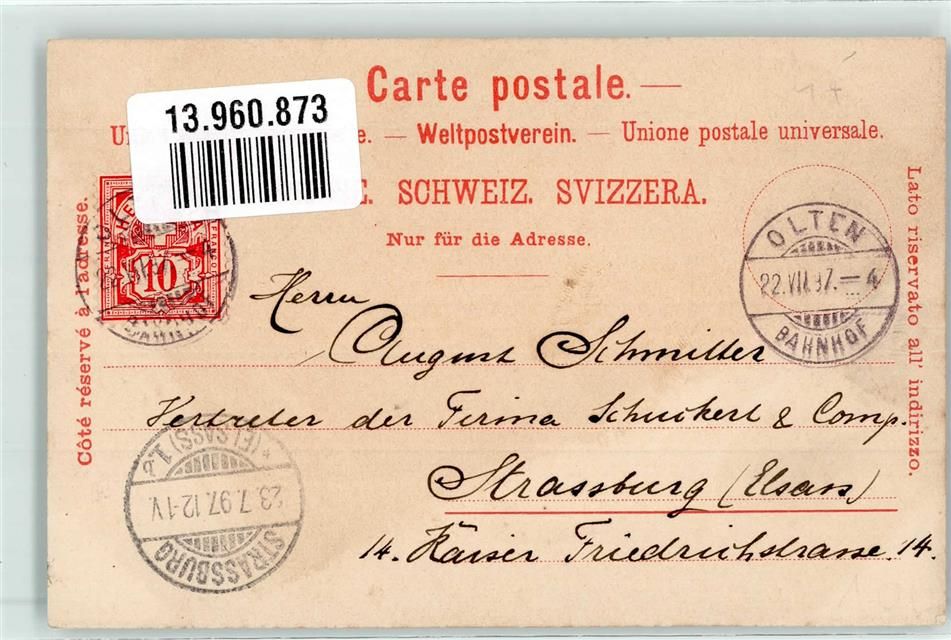 Carte postale.
13.960.873
Weltpostverein. — Unione postale universale.
SCHWEIZ. SVIZZERA.
Nur für die Adresse.
Côté réservé à l'adresse.
Lato riservato all' indirizzo.
FRANCO
10
OLTEN
22.VII.97.—4
BAHNHOF
Herrn
August Schmitter
Vertreter der Firma Schuckert & Comp.
Strassburg (Elsass)
14. Kaiser Friedrichstrasse 14.
STRASSBURG
23.7.97.12-1V.
*(ELSASS) 1.d.